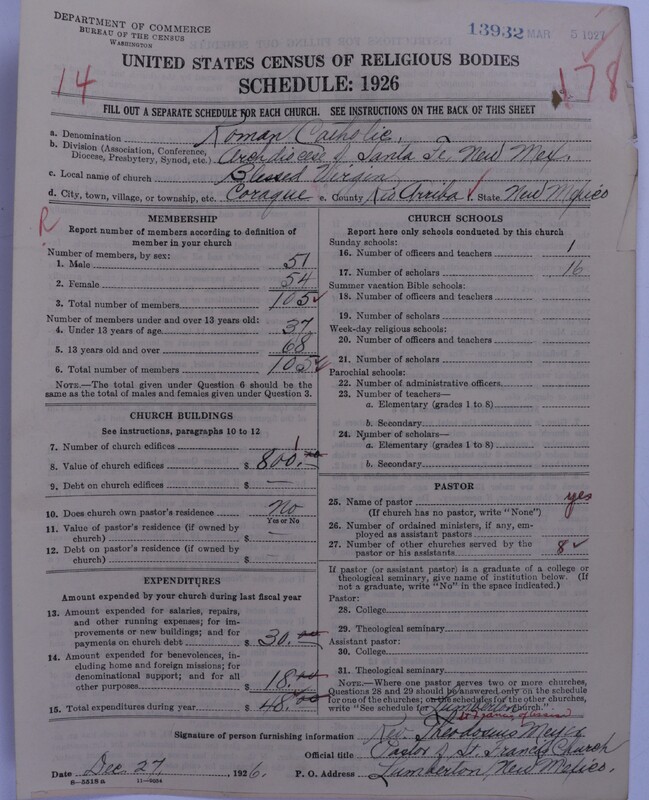 DEPARTMENT OF COMMERCE
BUREAU OF THE CENSUS
WASHINGTON
13932 MAR 5 1927
UNITED STATES CENSUS OF RELIGIOUS BODIES
SCHEDULE: 1926
14
178
FILL OUT A SEPARATE SCHEDULE FOR EACH CHURCH. SEE INSTRUCTIONS ON THE BACK OF THIS SHEET
a. Denomination Roman Catholic.
b. Division (Association, Conference, Diocese, Presbytery, Synod, etc.) Archdiocese of Santa Fe, New Mex.
c. Local name of church Blessed Virgin
d. City, town, village, or township, etc. Coraque e. County Rio Arriba ✓ f. State New Mexico
R
MEMBERSHIP
Report number of members according to definition of
member in your church
Number of members, by sex:
1. Male 51
2. Female 54
3. Total number of members 105 ✓
Number of members under and over 13 years old:
4. Under 13 years of age 37
5. 13 years old and over 68
6. Total number of members 105 ✓
NOTE.—The total given under Question 6 should be
same as the total of males and females given under Question 3.
CHURCH BUILDINGS
See instructions, paragraphs 10 to 12
7. Number of church edifices 1
8. Value of church edifices $ 800.00
9. Debt on church edifices $ —
10. Does church own pastor's residence No
Yes or No
11. Value of pastor's residence (if owned by
church) $ —
12. Debt on pastor's residence (if owned by
church) $ —
EXPENDITURES
Amount expended by your church during last fiscal year
13. Amount expended for salaries, repairs,
and other running expenses; for im-
provements or new buildings; and for
payments on church debt $ 30.00
14. Amount expended for benevolences, in-
cluding home and foreign missions; for
denominational support; and for all
other purposes $ 18.00
15. Total expenditures during year $ 48.00
CHURCH SCHOOLS
Report here only schools conducted by this church
Sunday schools:
16. Number of officers and teachers 1
17. Number of scholars 16
Summer vacation Bible schools:
18. Number of officers and teachers
19. Number of scholars
Week-day religious schools:
20. Number of officers and teachers
21. Number of scholars
Parochial schools:
22. Number of administrative officers
23. Number of teachers—
a. Elementary (grades 1 to 8)
b. Secondary
24. Number of scholars—
a. Elementary (grades 1 to 8)
b. Secondary
PASTOR
25. Name of pastor yes
(If church has no pastor, write "None")
26. Number of ordained ministers, if any, em-
ployed as assistant pastors
27. Number of other churches served by the
pastor or his assistants 8 ✓
If pastor (or assistant pastor) is a graduate of a college or
theological seminary, give name of institution below. (If
not a graduate, write "No" in the space indicated.)
Pastor:
28. College
29. Theological seminary
Assistant pastor:
30. College
31. Theological seminary
NOTE.—Where one pastor serves two or more churches,
Questions 28 and 29 should be answered only on the schedule
for one of the churches; on the schedules for the other churches,
write "See schedule for Lumberton church."
Signature of person furnishing information Rev. Theodosius Meyer
Official title Pastor of St. Francis Church
Date Dec. 27, 1926. P. O. Address Lumberton, New Mexico.
8—5518a 11—9024